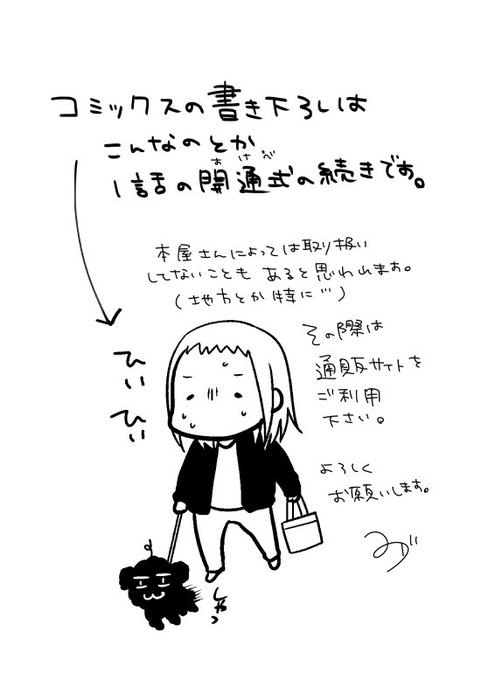 コミックスの書き下ろしは
こんなのとか
1話の開通式の続きです。
本屋さんによっては取り扱い
してないことも あると思われます。
(地方とか特に…)
その際は
通販サイトを
ご利用
下さい。
よろしく
お願いします。
ひぃ
ひぃ